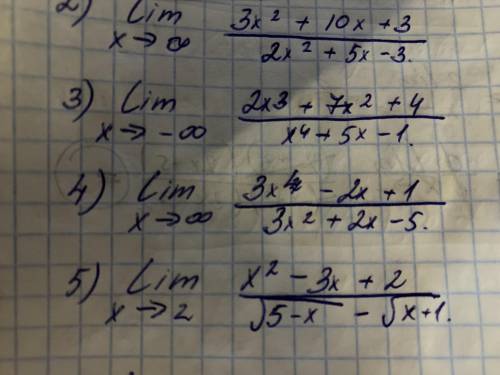 2) Lim x→∞ (3x² + 10x + 3)/(2x² + 5x - 3.)
3) Lim x→-∞ (2x3 + 7x² + 4)/(x4 + 5x - 1.)
4) Lim x→∞ (3x4 - 2x + 1)/(3x² + 2x - 5.)
5) Lim x→2 (x² - 3x + 2)/(√5-x - √x+1.)